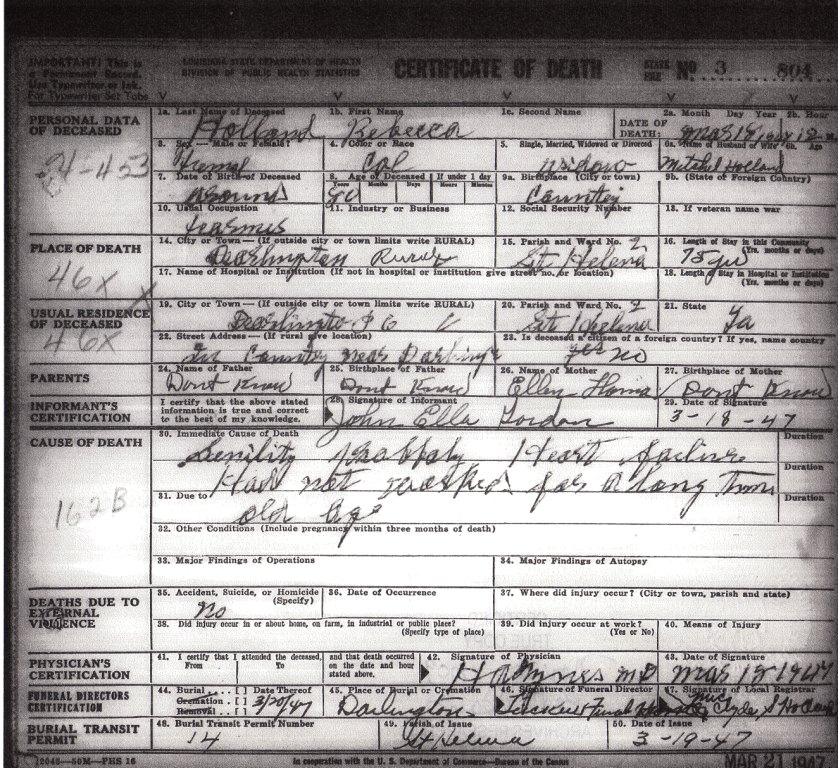 IMPORTANT! This is a Permanent Record. Use Typewriter or Ink. For Typewriter Set Tabs
LOUISIANA STATE DEPARTMENT OF HEALTH
DIVISION OF PUBLIC HEALTH STATISTICS
CERTIFICATE OF DEATH
STATE FILE No 3 804
PERSONAL DATA OF DECEASED
24-453
1a. Last Name of Deceased Holland
1b. First Name Rebecca
1c. Second Name
DATE OF DEATH:
2a. Month Day Year
2b. Hour
3. Sex—Male or Female?
4. Color or Race Col
5. Single, Married, Widowed or Divorced
6a. Name of Husband or Wife Mitchel Holland
6b. Age
7. Date of Birth of Deceased
8. Age of Deceased Years Months Days
If under 1 day Hours Minutes
9a. Birthplace (City or town) Country
9b. (State of Foreign Country)
10. Usual Occupation
11. Industry or Business
12. Social Security Number
13. If veteran name war
PLACE OF DEATH
46X
14. City or Town—(If outside city or town limits write RURAL) Rural
15. Parish and Ward No. 2 St Helena
16. Length of Stay in this Community (Yrs. months or days) 75
17. Name of Hospital or Institution (If not in hospital or institution give street no. or location)
18. Length of Stay in Hospital or Institution (Yrs. months or days)
USUAL RESIDENCE OF DECEASED
46X
19. City or Town—(If outside city or town limits write RURAL)
20. Parish and Ward No. 2 St Helena
21. State
22. Street Address—(If rural give location) In Country near
23. Is deceased a citizen of a foreign country? If yes, name country no
PARENTS
24. Name of Father Dont Know
25. Birthplace of Father Dont Know
26. Name of Mother
27. Birthplace of Mother Dont Know
INFORMANT'S CERTIFICATION
I certify that the above stated information is true and correct to the best of my knowledge.
28. Signature of Informant John Ella Gordon
29. Date of Signature 3-18-47
CAUSE OF DEATH
162B
30. Immediate Cause of Death Duration
Senility probably Heart failure
Had not worked for a long time Duration
31. Due to old age Duration
32. Other Conditions (Include pregnancy within three months of death)
33. Major Findings of Operations
34. Major Findings of Autopsy
DEATHS DUE TO EXTERNAL VIOLENCE
35. Accident, Suicide, or Homicide (Specify) No
36. Date of Occurrence
37. Where did injury occur? (City or town, parish and state)
38. Did injury occur in or about home, on farm, in industrial or public place? (Specify type of place)
39. Did injury occur at work? (Yes or No)
40. Means of Injury
PHYSICIAN'S CERTIFICATION
41. I certify that I attended the deceased, From To
and that death occurred on the date and hour stated above.
42. Signature of Physician
43. Date of Signature Mar 18 1947
FUNERAL DIRECTORS CERTIFICATION
44. Burial... [ ] Date Thereof
Cremation . [ ] 3/20/47
Removal .. [ ]
45. Place of Burial or Cremation Darlington
46. Signature of Funeral Director
47. Signature of Local Registrar
BURIAL TRANSIT PERMIT
48. Burial Transit Permit Number 14
49. Parish of Issue St Helena
50. Date of Issue 3-19-47
2046—50M—PHS 16
In cooperation with the U. S. Department of Commerce—Bureau of the Census
MAR 21 1947